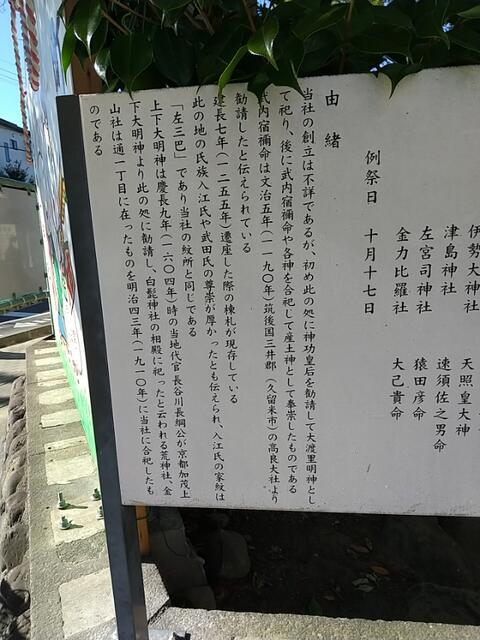 伊勢大神社 天照皇大神
津島神社 速須佐之男命
左宮司神社 猿田彦命
金力比羅社 大己貴命
例祭日 十月十七日
由緒
当社の創立は不詳であるが、初め此の処に神功皇后を勧請して大渡里明神とし
て祀り、後に武内宿禰命や各神を合祀して産土神として奉崇したものである
武内宿禰命は文治五年(一一九〇年)筑後国三井郡(久留米市)の高良大社より
勧請したと伝えられている
建長七年(一二五五年)遷座した際の棟札が現存している
此の地の氏族入江氏や武田氏の尊崇が厚かったとも伝えられ、入江氏の家紋は
「左三巴」であり当社の紋所と同じである
上下大明神は慶長九年(一六〇四年)時の当地代官長谷川長綱公が京都加茂上
下大明神より此の処に勧請し、白髭神社の相殿に祀ったと云われる荒神社、金
山社は通一丁目に在ったものを明治四三年(一九一〇年)に当社に合祀したも
のである